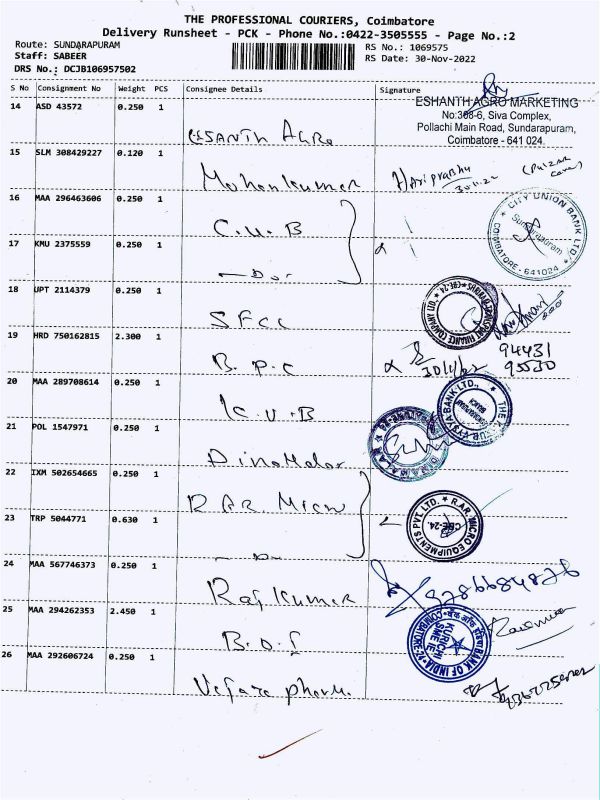 THE PROFESSIONAL COURIERS, Coimbatore
Delivery Runsheet - PCK - Phone No.:0422-3505555 - Page No.:2
Route: SUNDARAPURAM
RS No.: 1069575
Staff: SABEER
RS Date: 30-Nov-2022
DRS No.: DCJB106957502
S No Consignment No Weight PCS Consignee Details Signature
14 ASD 43572 0.250 1
ESHANTH AGRO MARKETING
No:308-6, Siva Complex,
Pollachi Main Road, Sundarapuram,
Coimbatore - 641 024.
ESANTH AGRO
15 SLM 308429227 0.120 1
Mohankumar Hariprabhu
30.11.22
16 MAA 296463606 0.250 1
C.U.B
CITY UNION BANK LTD.
Sundarapuram
COIMBATORE - 641024
17 KMU 2375559 0.250 1
- Do -
18 UPT 2114379 0.250 1
SFCC
19 HRD 750162815 2.300 1
B.P.C
30/11/22
94431
20 MAA 289708614 0.250 1
K.V.B
21 POL 1547971 0.250 1
DinaMalar
22 IXM 502654665 0.250 1
R.AR. Micro
R.A.R. MICRO EQUIPMENTS PVT. LTD.
CBE-24.
23 TRP 5044771 0.630 1
- Do -
24 MAA 567746373 0.250 1
Rajkumar
25 MAA 294262353 2.450 1
B.O.I
BANK OF INDIA
KURICHI
SME
COIMBATORE
26 MAA 292606724 0.250 1